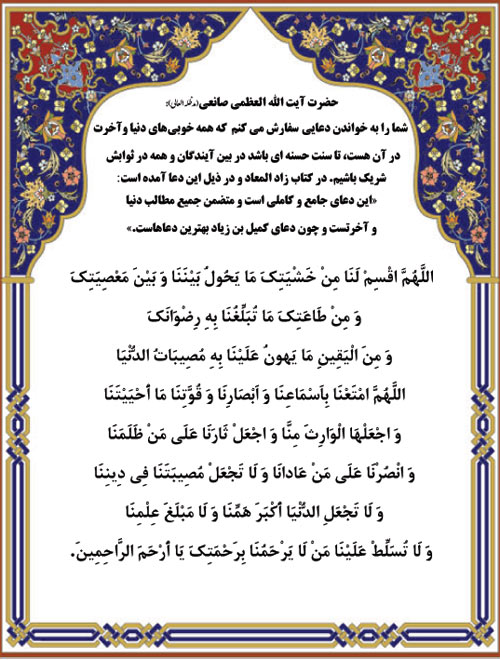 حضرت آیت الله العظمی صانعی(مدّظلّه العالی):
شما را به خواندن دعایی سفارش می کنم که همه خوبی‌های دنیا وآخرت
در آن هست، تا سنت حسنه ای باشد در بین آیندگان و همه در ثوابش
شریک باشیم. در کتاب زاد المعاد و در ذیل این دعا آمده است:
«این دعای جامع و کاملی است و متضمن جمیع مطالب دنیا
و آخرتست و چون دعای کمیل بن زیاد بهترین دعاهاست.»
اللَّهُمَّ اقْسِمْ لَنَا مِنْ خَشْيَتِکَ مَا يَحُولُ بَيْنَنَا وَ بَيْنَ مَعْصِيَتِکَ
وَ مِنْ طَاعَتِکَ مَا تُبَلِّغُنَا بِهِ رِضْوَانَکَ
وَ مِنَ الْيَقِينِ مَا يَهونُ عَلَيْنَا بِهِ مُصِيبَاتُ الدُّنْيَا
اللَّهُمَّ امْتَعْنَا بِأَسْمَاعِنَا وَ أَبْصَارِنَا وَ قُوَّتِنَا مَا أَحْيَيْتَنَا
وَ اجْعَلْهَا الْوَارِثَ مِنَّا وَ اجْعَلْ ثَارَنَا عَلَى مَنْ ظَلَمَنَا
وَ انْصُرْنَا عَلَى مَنْ عَادَانَا وَ لَا تَجْعَلْ مُصِيبَتَنَا فِى دِينِنَا
وَ لَا تَجْعَلِ الدُّنْيَا أَکْبَرَ هَمِّنَا وَ لَا مَبْلَغَ عِلْمِنَا
وَ لَا تُسَلِّطْ عَلَيْنَا مَنْ لَا يَرْحَمُنَا بِرَحْمَتِکَ يَا أَرْحَمَ الرَّاحِمِينَ.